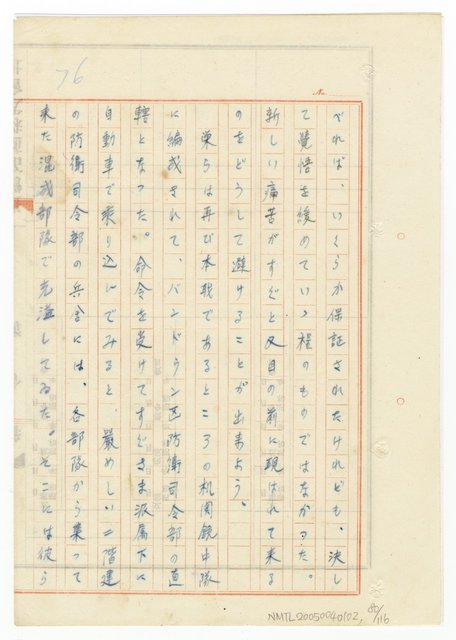 76
No.
べれば、いくらか保証されたけれども、決し
て覚悟を緩めていゝ程のものではなかった。
新しい痛苦がすぐと又目の前に現はれて来る
のをどうして避けることが出来よう。
栄らは再び本職であるところの机関銃中隊
に編成されて、バンドウン区防衛司令部の直
轄となった。命令を受けてすぐさま派属下に
自動車で乗り込んでみると、厳めしい二階建
の防衛司令部の兵舎には、各部隊から集って
来た混成部隊で充溢してゐた。そこには彼ら
NMTL20050040102, 80/116